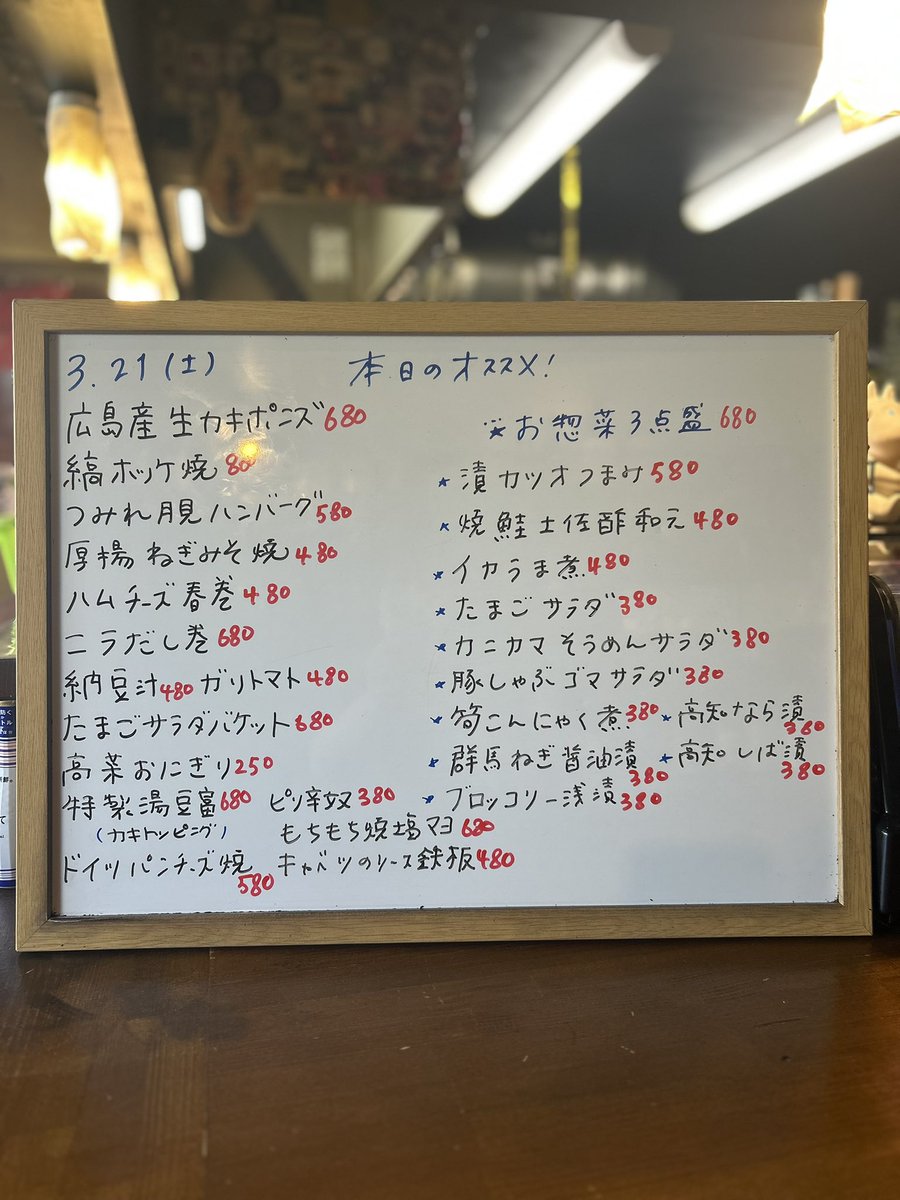 3.21(土) 本日のオススメ!
広島産生カキポン​ズ680
縞ホッケ焼80
つみれ月見ハンバーグ580
厚揚ねぎみそ焼480
ハムチーズ春巻480
ニラだし巻680
納豆汁480 ガリトマト480
たまごサラダバケット680
高菜おにぎり250
特製湯豆富680 ピリ辛奴380
(カキトッピング) もちもち焼塩マヨ680
ドイツパンチーズ焼580 キャベツのソース鉄板480
※お惣菜3点盛680
★漬カツオつまみ580
★焼鮭土佐酢和え480
★イカうま煮480
★たまごサラダ380
★カニカマそうめんサラダ380
★豚しゃぶゴマサラダ380
★筍こんにゃく煮380 ★高知なら漬380
★群馬ねぎ醤油漬380 ★高知しば漬380
★ブロッコリー浅漬380